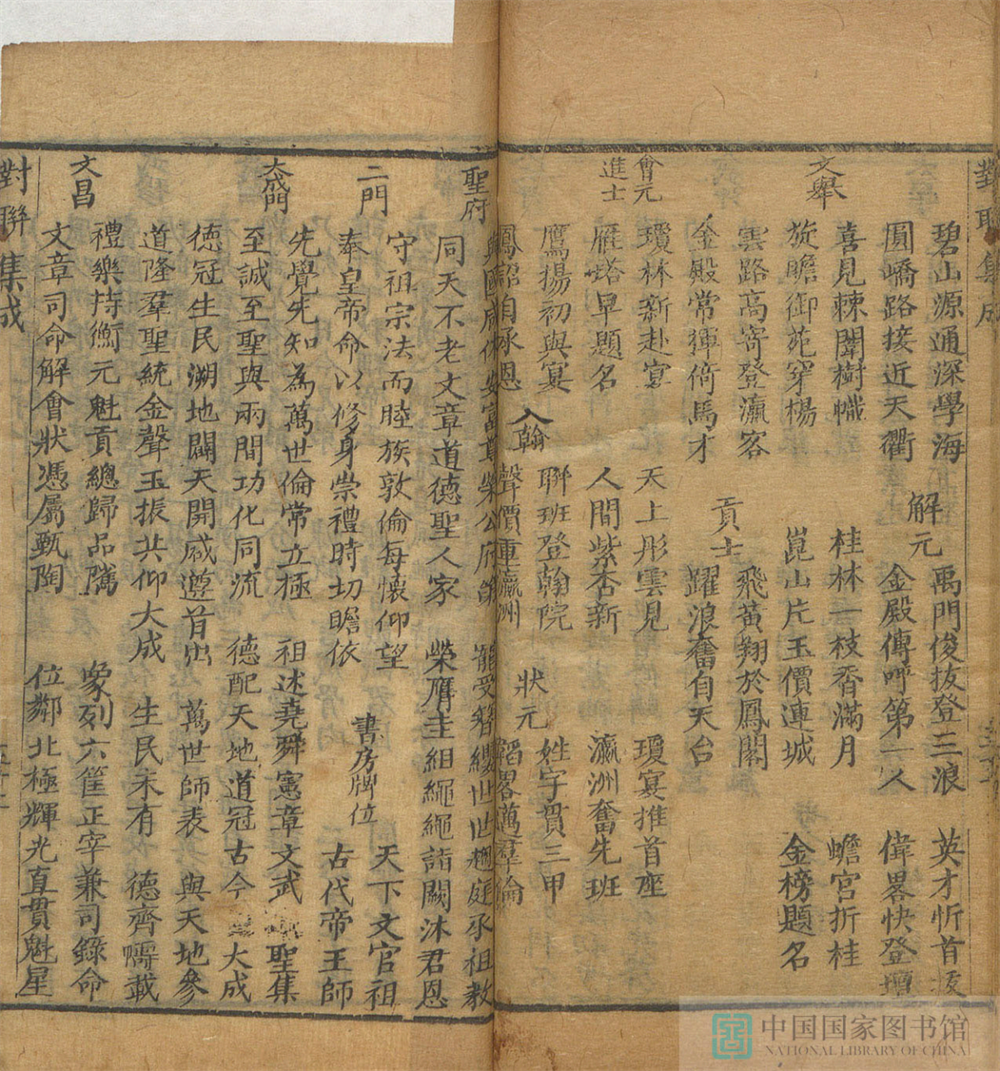 對聯集成
碧山源通深學海 禹門俊拔登三浪 英才忻首拔
圓嶠路接近天衢 解元 金殿傳呼第一人 偉畧快登壇
文舉 喜見棘闈樹幟 桂林一枝香滿月 蟾宮折桂
旋瞻御苑穿楊 崑山片玉價連城 金榜題名
雲路高寄登瀛客 貢士 飛黃翔於鳳閣
金殿常揮倚馬才 躍浪奮自天台
會元 進士 瓊林新赴宴 天上彤雲見 瓊宴推首座
雁塔早題名 人間紫杏新 瀛洲奮先班
鷹揚初與宴 入翰 聯班登翰院 狀元 姓字貫三甲
鳳詔自承恩 聲價重瀛洲 韜畧邁羣倫
聖府 與國咸休安富尊榮公府第 寵受簪纓世世趨庭承祖教
同天不老文章道德聖人家 榮膺圭組繩繩詣闕沐君恩
二門 守祖宗法而睦族敦倫每懷仰望 書房牌位 天下文官祖
奉皇帝命以修身崇禮時切瞻依 古代帝王師
大成門 先覺先知為萬世倫常立極 祖述堯舜憲章文武 聖集
至誠至聖與兩間功化同流 德配天地道冠古今 大成
德冠生民溯地闢天開咸遵首出 萬世師表 與天地參
道隆羣聖統金聲玉振共仰大成 生民未有 德齊幬載
文昌 禮樂持衡元魁貢總歸品隲 象列六筐正宰兼司錄命
文章司命解會狀憑屬甄陶 位鄰北極輝光直貫魁星
對聯集成
中国国家图书馆
NATIONAL LIBRARY OF CHINA